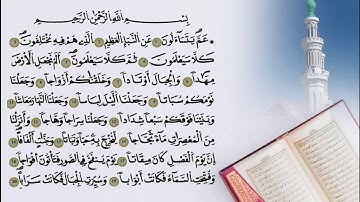 بِسْمِ اللَّهِ الرَّحْمَٰنِ الرَّحِيمِ
عَمَّ يَتَسَاءَلُونَ ۝١ عَنِ النَّبَإِ الْعَظِيمِ ۝٢ الَّذِي هُمْ فِيهِ مُخْتَلِفُونَ ۝٣
كَلَّا سَيَعْلَمُونَ ۝٤ ثُمَّ كَلَّا سَيَعْلَمُونَ ۝٥ أَلَمْ نَجْعَلِ الْأَرْضَ
مِهَادًا ۝٦ وَالْجِبَالَ أَوْتَادًا ۝٧ وَخَلَقْنَاكُمْ أَزْوَاجًا ۝٨ وَجَعَلْنَا
نَوْمَكُمْ سُبَاتًا ۝٩ وَجَعَلْنَا اللَّيْلَ لِبَاسًا ۝١٠ وَجَعَلْنَا النَّهَارَ مَعَاشًا ۝١١
وَبَنَيْنَا فَوْقَكُمْ سَبْعًا شِدَادًا ۝١٢ وَجَعَلْنَا سِرَاجًا وَهَّاجًا ۝١٣ وَأَنْزَلْنَا
مِنَ الْمُعْصِرَاتِ مَاءً ثَجَّاجًا ۝١٤ لِنُخْرِجَ بِهِ حَبًّا وَنَبَاتًا ۝١٥ وَجَنَّاتٍ أَلْفَافًا ۝١٦
إِنَّ يَوْمَ الْفَصْلِ كَانَ مِيقَاتًا ۝١٧ يَوْمَ يُنْفَخُ فِي الصُّورِ فَتَأْتُونَ أَفْوَاجًا ۝١٨
وَفُتِحَتِ السَّمَاءُ فَكَانَتْ أَبْوَابًا ۝١٩ وَسُيِّرَتِ الْجِبَالُ فَكَانَتْ سَرَابًا ۝٢٠